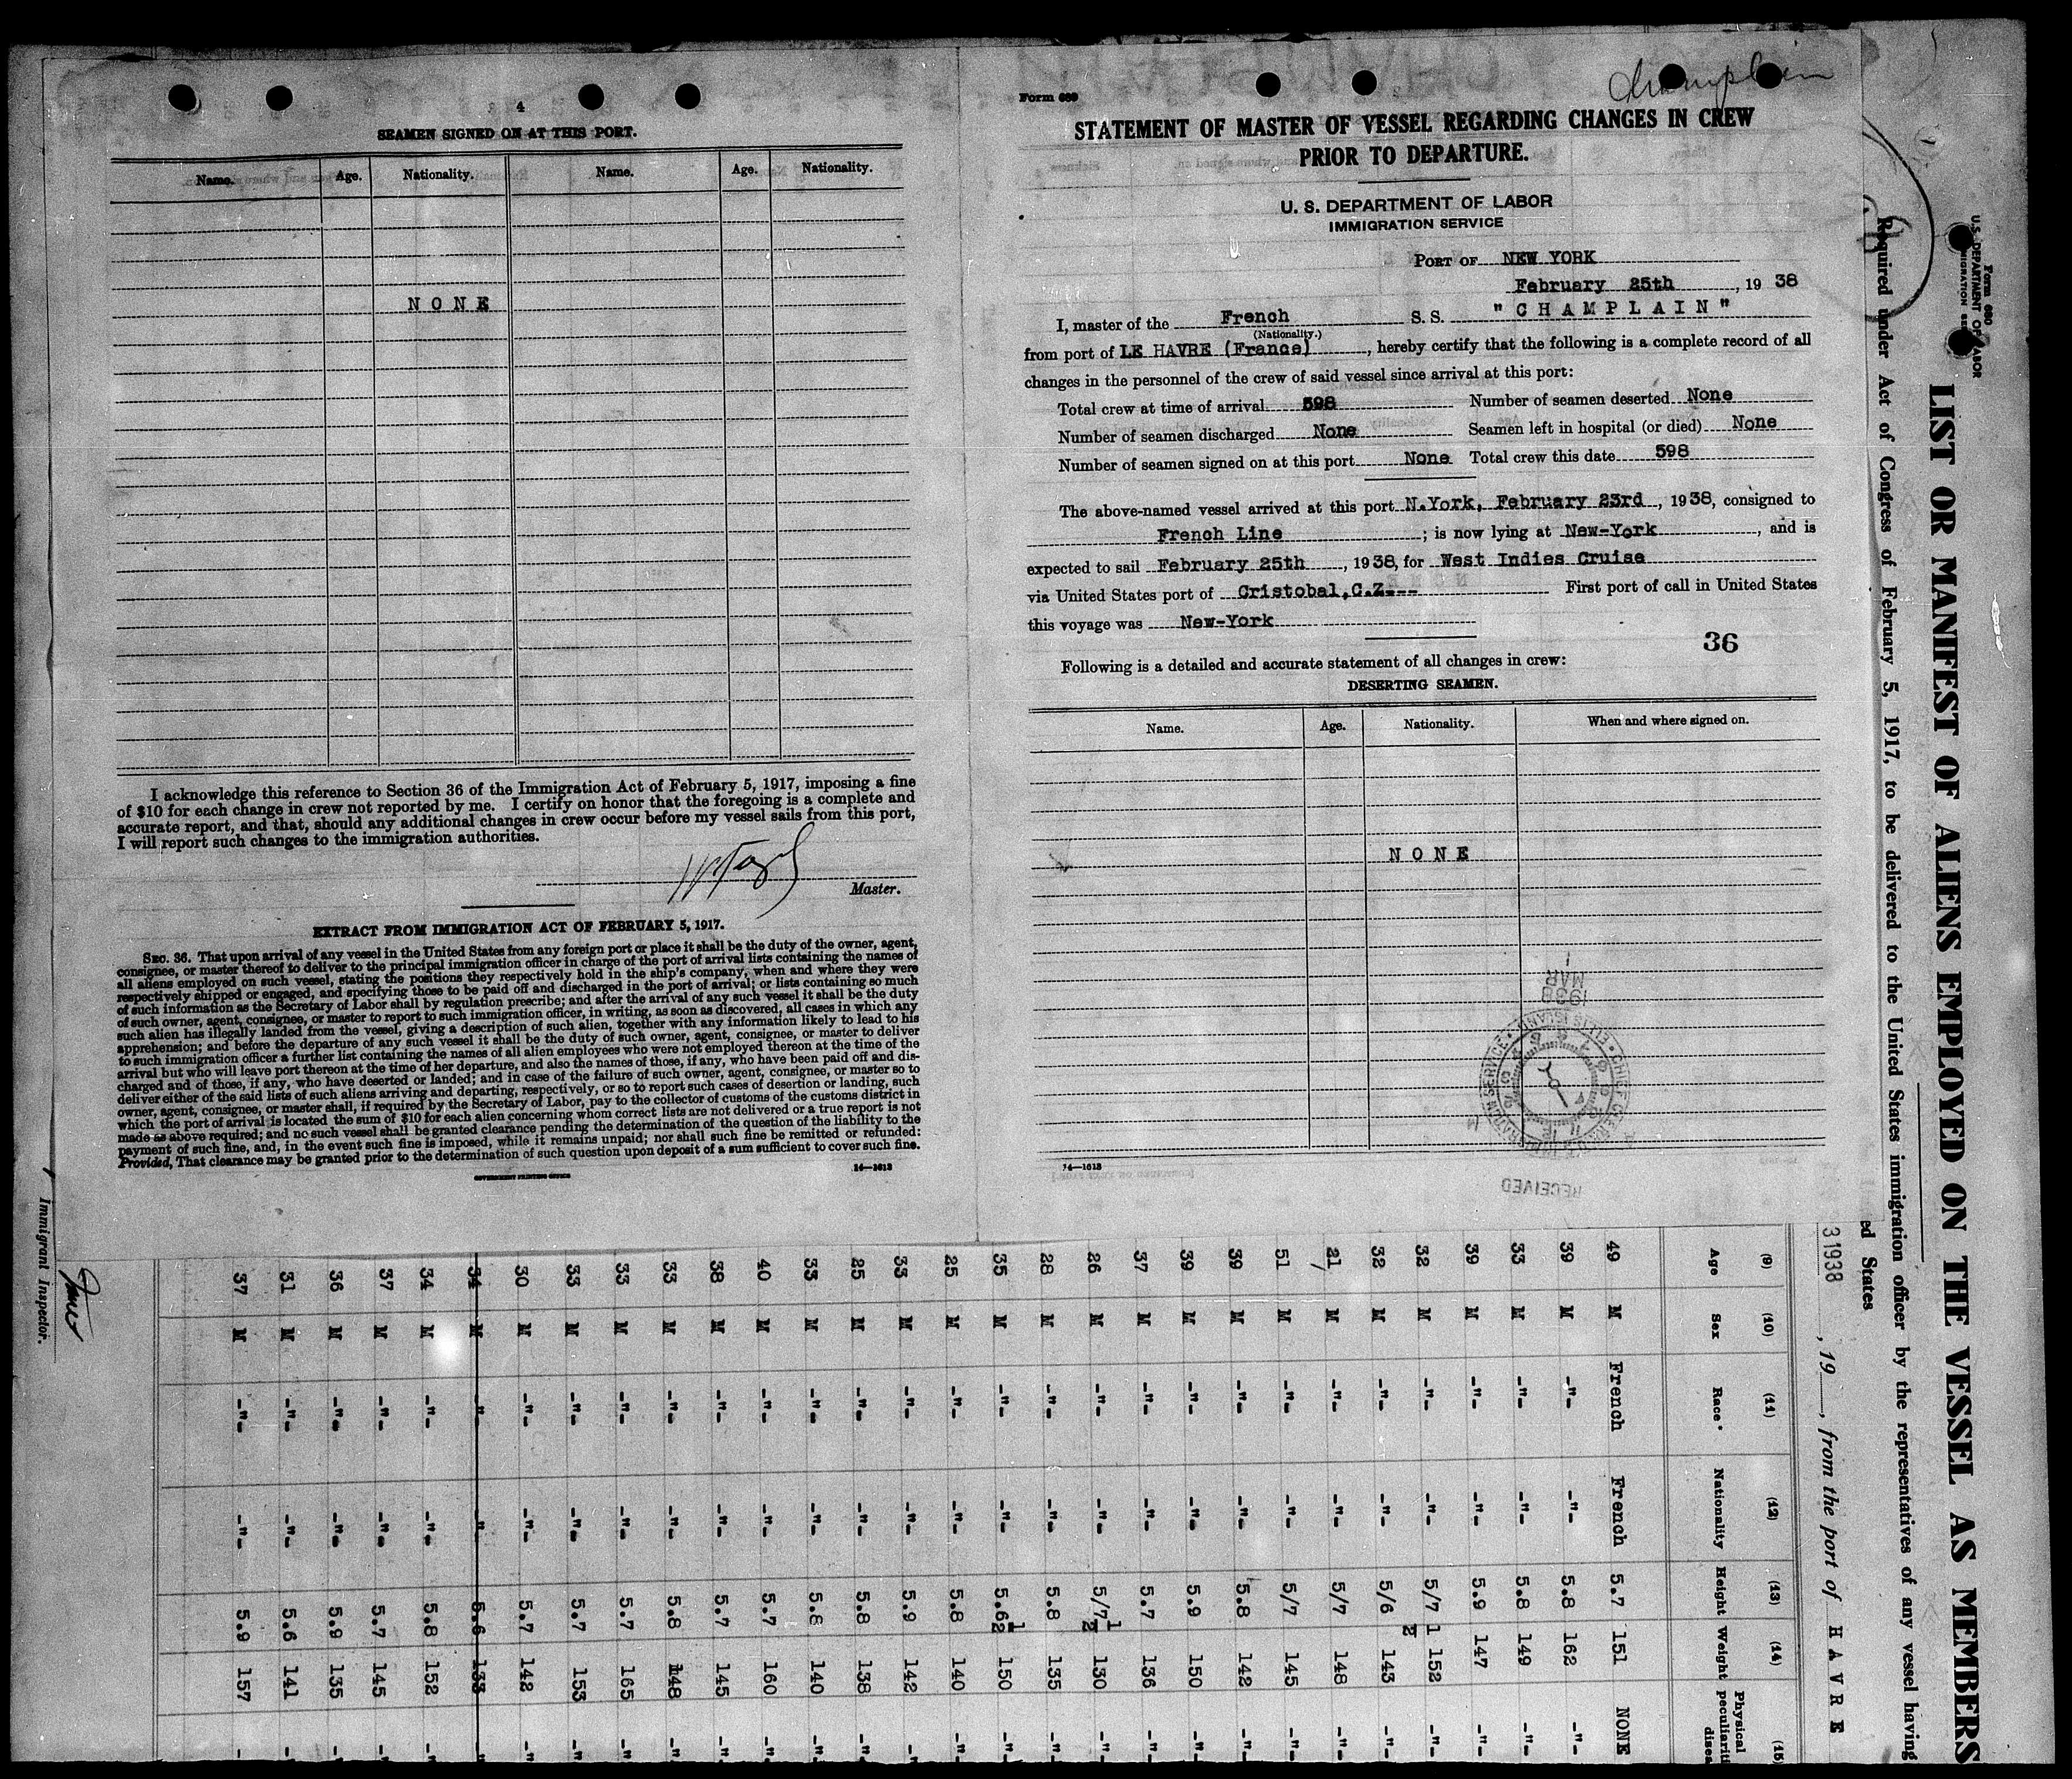 4
SEAMEN SIGNED ON AT THIS PORT.
Name. Age. Nationality. Name. Age. Nationality.
NONE
I acknowledge this reference to Section 36 of the Immigration Act of February 5, 1917, imposing a fine
of $10 for each change in crew not reported by me. I certify on honor that the foregoing is a complete and
accurate report, and that, should any additional changes in crew occur before my vessel sails from this port,
I will report such changes to the immigration authorities.
Master.
EXTRACT FROM IMMIGRATION ACT OF FEBRUARY 5, 1917.
SEC. 36. That upon arrival of any vessel in the United States from any foreign port or place it shall be the duty of the owner, agent,
consignee, or master thereof to deliver to the principal immigration officer in charge of the port of arrival lists containing the names of
all aliens employed on such vessel, stating the positions they respectively hold in the ship's company, when and where they were
respectively shipped or engaged, and specifying those to be paid off and discharged in the port of arrival; or lists containing so much
of such information as the Secretary of Labor shall by regulation prescribe; and after the arrival of any such vessel it shall be the duty
of such owner, agent, consignee, or master to report to such immigration officer, in writing, as soon as discovered, all cases in which any
such alien has illegally landed from the vessel, giving a description of such alien, together with any information likely to lead to his
apprehension; and before the departure of any such vessel it shall be the duty of such owner, agent, consignee, or master to deliver
to such immigration officer a further list containing the names of all alien employees who were not employed thereon at the time of the
arrival but who will leave port thereon at the time of her departure, and also the names of those, if any, who have been paid off and dis-
charged and of those, if any, who have deserted or landed; and in case of the failure of such owner, agent, consignee, or master so to
deliver either of the said lists of such aliens arriving and departing, respectively, or so to report such cases of desertion or landing, such
owner, agent, consignee, or master shall, if required by the Secretary of Labor, pay to the collector of customs of the customs district in
which the port of arrival is located the sum of $10 for each alien concerning whom correct lists are not delivered or a true report is not
made as above required; and no such vessel shall be granted clearance pending the determination of the question of the liability to the
payment of such fine, and, in the event such fine is imposed, while it remains unpaid; nor shall such fine be remitted or refunded:
Provided, That clearance may be granted prior to the determination of such question upon deposit of a sum sufficient to cover such fine.
GOVERNMENT PRINTING OFFICE 14—1613
Champlain
Form 689
STATEMENT OF MASTER OF VESSEL REGARDING CHANGES IN CREW
PRIOR TO DEPARTURE.
U. S. DEPARTMENT OF LABOR
IMMIGRATION SERVICE
PORT OF NEW YORK
February 25th, 1938
I, master of the French S. S. "CHAMPLAIN"
(Nationality.)
from port of LE HAVRE (France), hereby certify that the following is a complete record of all
changes in the personnel of the crew of said vessel since arrival at this port:
Total crew at time of arrival 598 Number of seamen deserted None
Number of seamen discharged None Seamen left in hospital (or died) None
Number of seamen signed on at this port None Total crew this date 598
The above-named vessel arrived at this port N.York, February 23rd, 1938, consigned to
French Line; is now lying at New-York, and is
expected to sail February 25th, 1938, for West Indies Cruise
via United States port of Cristobal,C.Z.-- First port of call in United States
this voyage was New-York
36
Following is a detailed and accurate statement of all changes in crew:
DESERTING SEAMEN.
Name. Age. Nationality. When and where signed on.
NONE
MAR
1938
RECEIVED
14—1613
Form 680
U. S. DEPARTMENT OF LABOR
IMMIGRATION SER
LIST OR MANIFEST OF ALIENS EMPLOYED ON THE VESSEL AS MEMBERS
Required under Act of Congress of February 5, 1917, to be delivered to the United States immigration officer by the representatives of any vessel having
ed States
3 1938, 19 , from the port of HAVRE
(9) (10) (11) (12) (13) (14) (15)
Age Sex Race* Nationality Height Weight Physical peculiarit diseas
49 M French French 5.7 151 NONE
39 M -"- -"- 5.8 162 -"-
33 M -"- -"- 5.8 149 -"-
39 M -"- -"- 5.9 147 -"-
32 M -"- -"- 5/7 1/2 152 -"-
32 M -"- -"- 5/6 143 -"-
21 M -"- -"- 5/7 148 -"-
51 M -"- -"- 5/7 145 -"-
39 M -"- -"- 5.8 142 -"-
39 M -"- -"- 5.9 150 -"-
37 M -"- -"- 5.7 136 -"-
26 M -"- -"- 5/7 1/2 130 -"-
28 M -"- -"- 5.8 135 -"-
35 M -"- -"- 5.6 1/2 150 -"-
25 M -"- -"- 5.8 140 -"-
33 M -"- -"- 5.9 142 -"-
25 M -"- -"- 5.8 138 -"-
33 M -"- -"- 5.8 140 -"-
40 M -"- -"- 5.7 160 -"-
38 M -"- -"- 5.7 145 -"-
33 M -"- -"- 5.8 148 -"-
33 M -"- -"- 5.7 165 -"-
33 M -"- -"- 5.7 153 -"-
30 M -"- -"- 5.7 142 -"-
34 M -"- -"- 5.6 133 -"-
34 M -"- -"- 5.8 152 -"-
37 M -"- -"- 5.7 145 -"-
36 M -"- -"- 5.9 135 -"-
31 M -"- -"- 5.6 141 -"-
37 M -"- -"- 5.9 157 -
Immigrant Inspector.